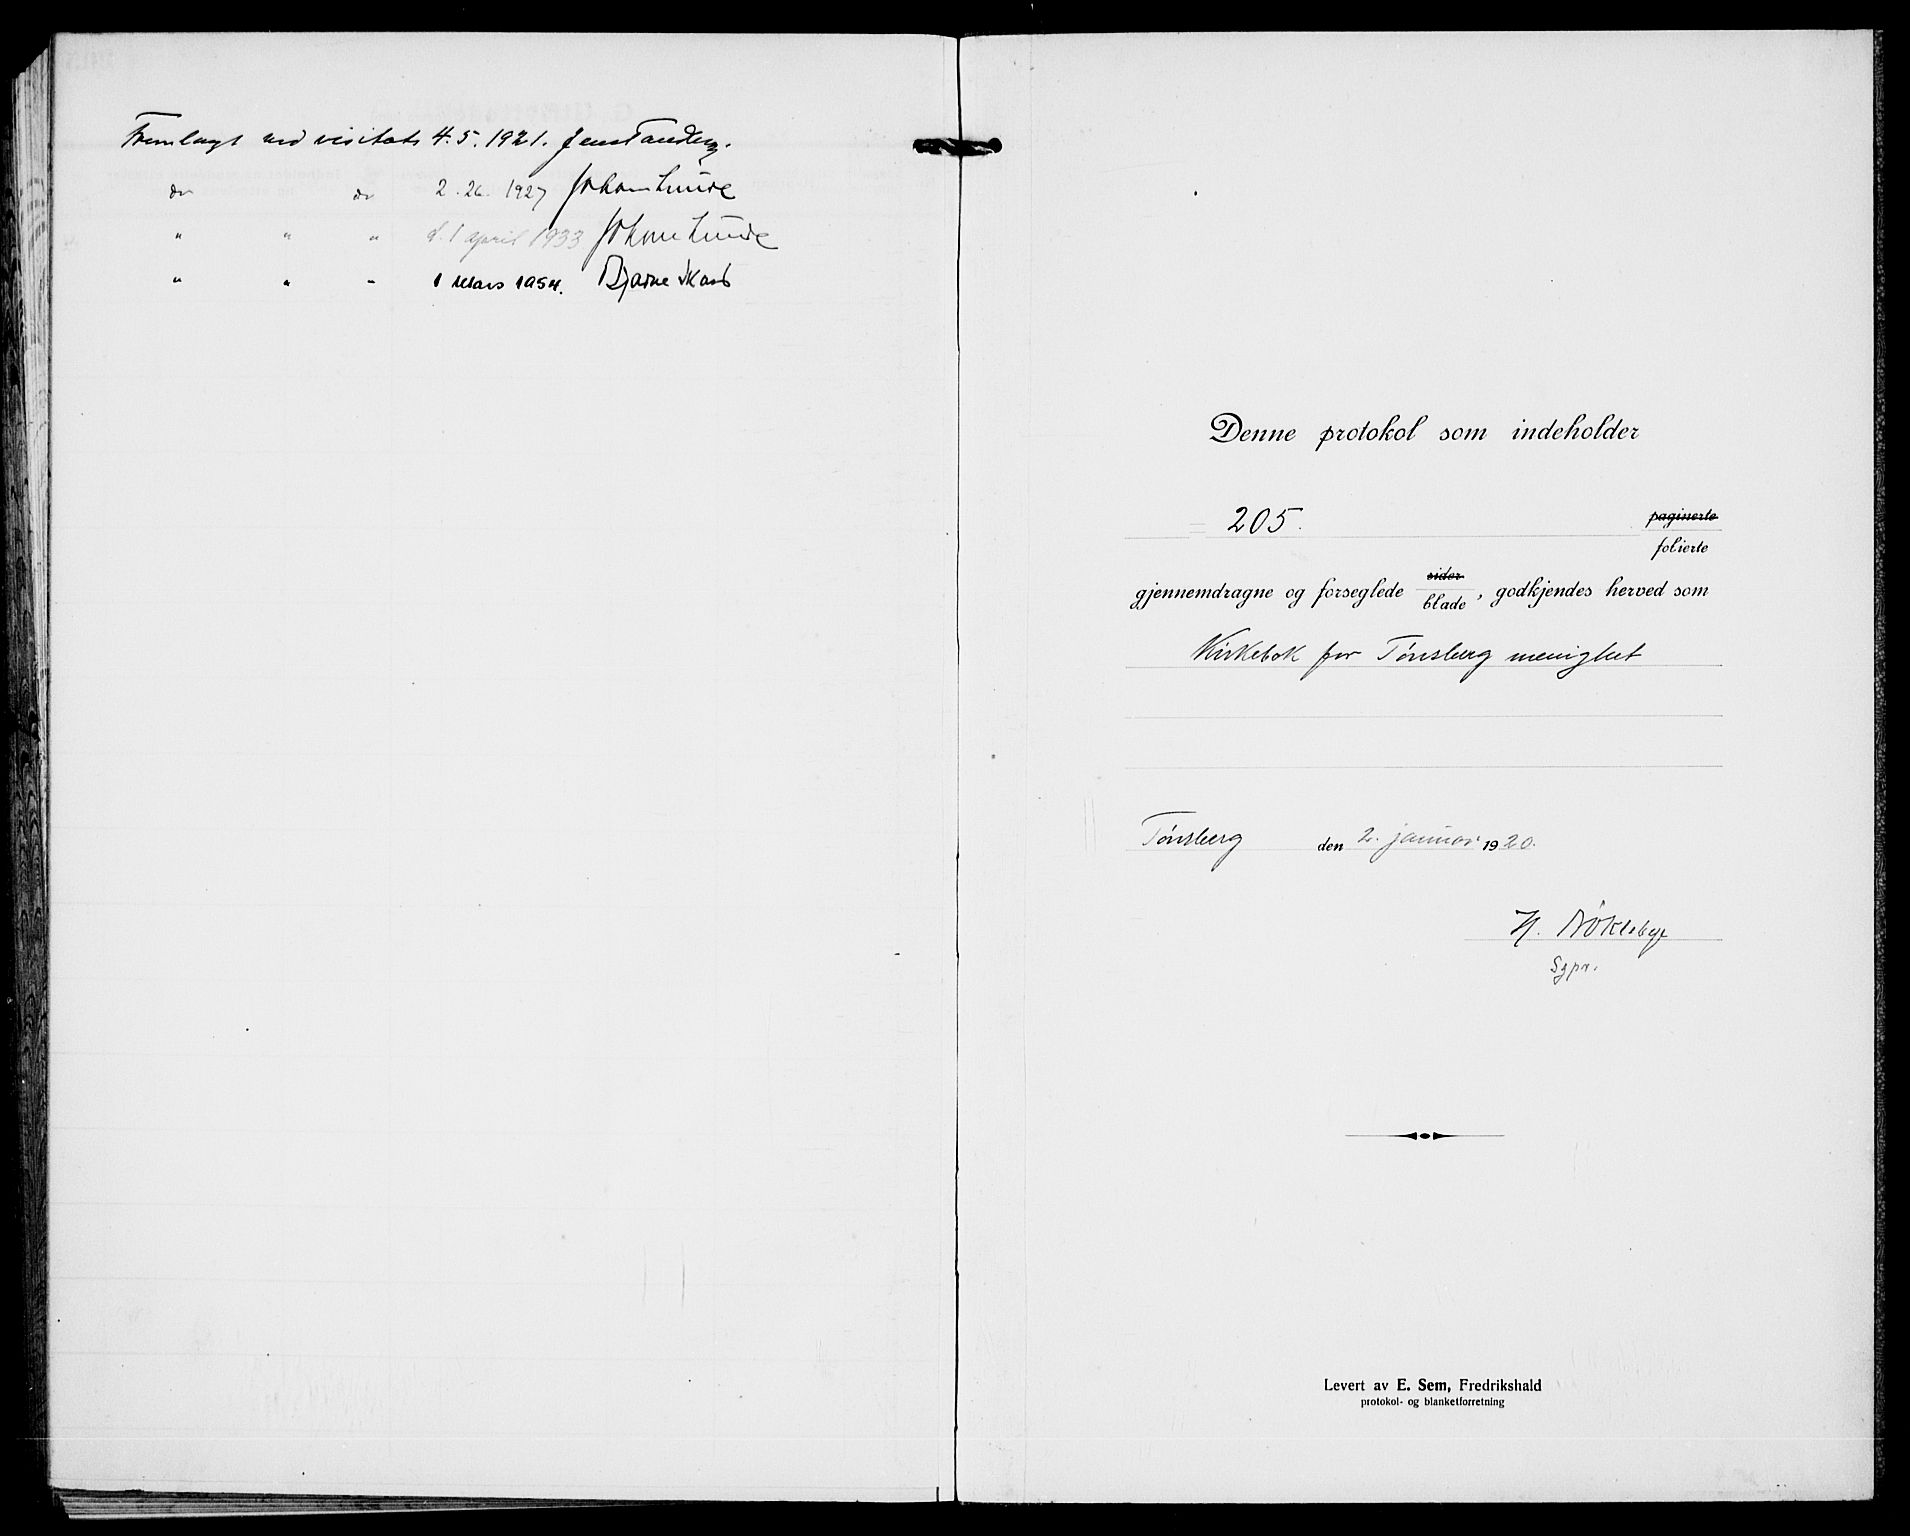 Fremlagt ved visitats 4.5.1921. Jens Tandberg.
do do 2. 26. 1927 Johan Lunde
" " " d. 1 april 1933 Johan Lunde
" " " 1 Mars 1954. Bjarne Skard
Denne protokol som indeholder
= 205.
paginerte
folierte
gjennemdragne og forseglede sider
blade, godkjendes herved som
Kirkebok for Tønsberg menighet
Tønsberg den 2. januar 1920.
H. Nøklebye
Sgpr.
Levert av E. Sem, Fredrikshald
protokol- og blanketforretning